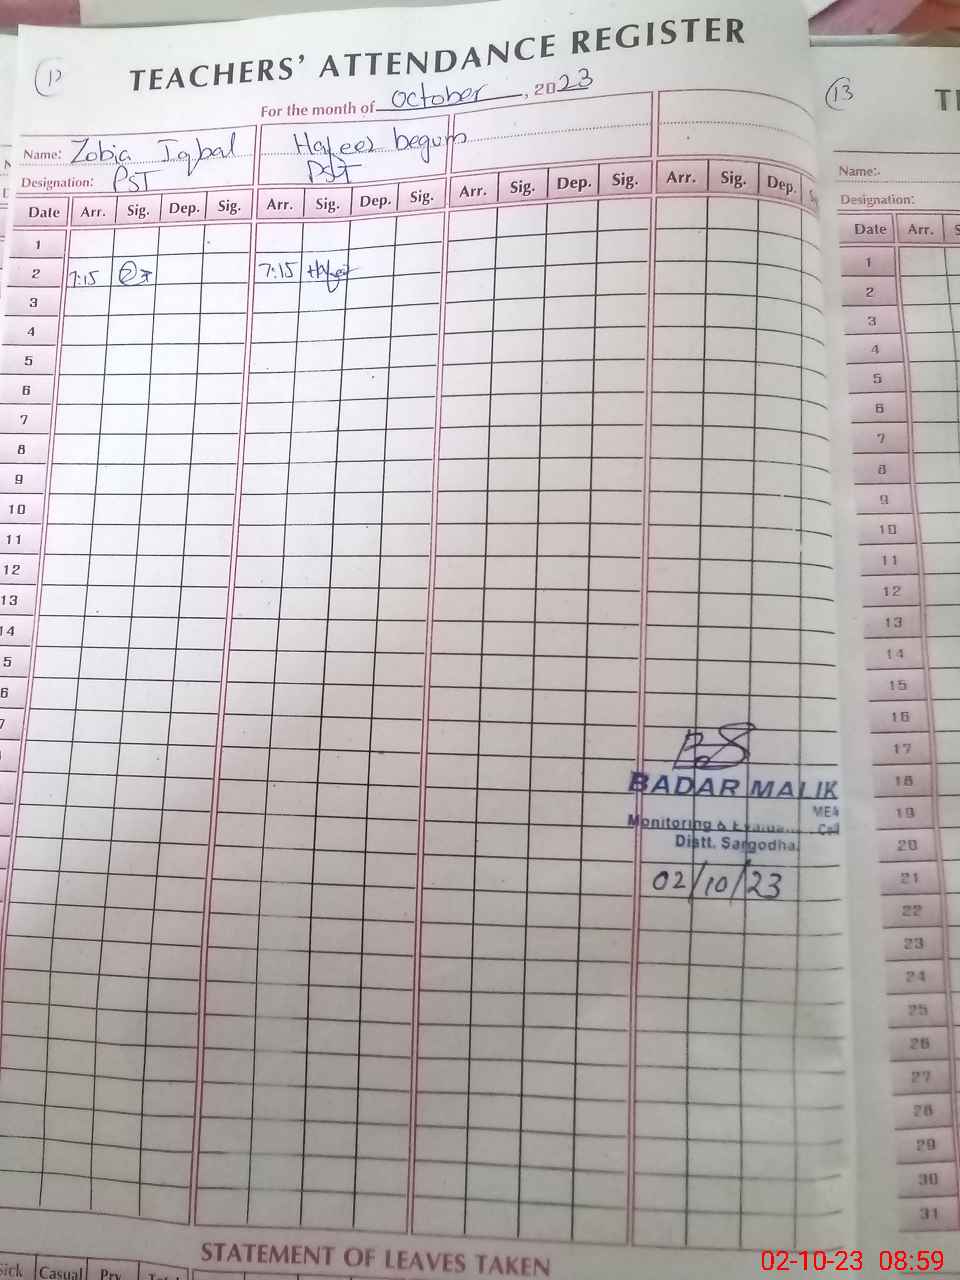 12
TEACHERS' ATTENDANCE REGISTER
For the month of October, 2023
Name: Zobia Iqbal Hafeez begum
Designation: PST PST
Date Arr. Sig. Dep. Sig. Arr. Sig. Dep. Sig. Arr. Sig. Dep. Sig. Arr. Sig. Dep.
1
2 7:15 7:15 Hafeez
3
4
5
6
7
8
9
10
11
12
13
14
5
6
7
BADAR MALIK
MEA
Monitoring & Cell
Distt. Sargodha.
02/10/23
STATEMENT OF LEAVES TAKEN
Sick Casual
13
Name:-
Designation:
Date Arr.
1
2
3
4
5
6
7
8
9
10
11
12
13
14
15
16
17
18
19
20
21
22
23
24
25
26
27
28
29
30
31
02-10-23 08:59